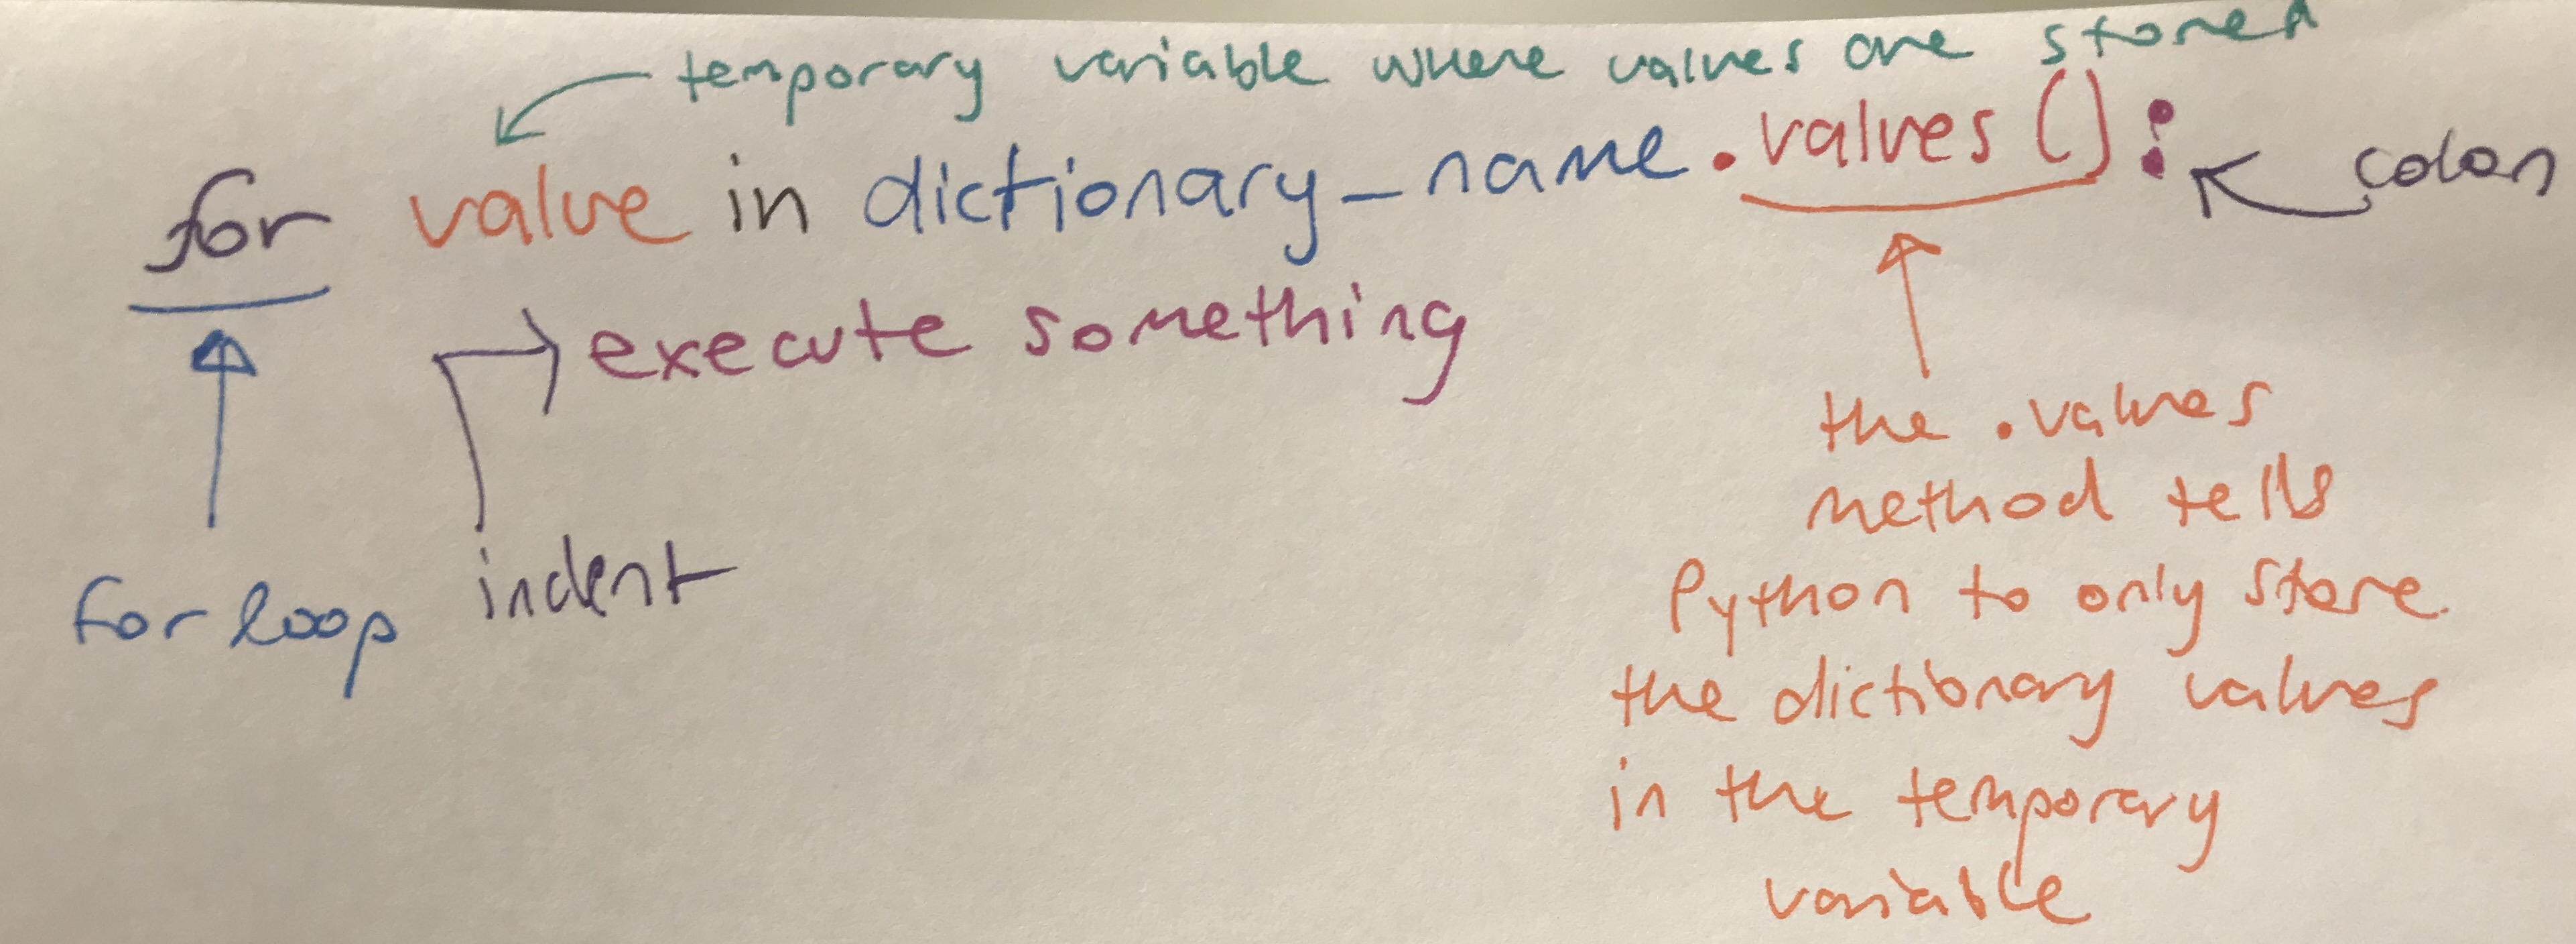 temporary variable where values are stored
for value in dictionary_name.values():
colon
execute something
for loop
indent
the .values
method tells
Python to only store
the dictionary values
in the temporary
variable